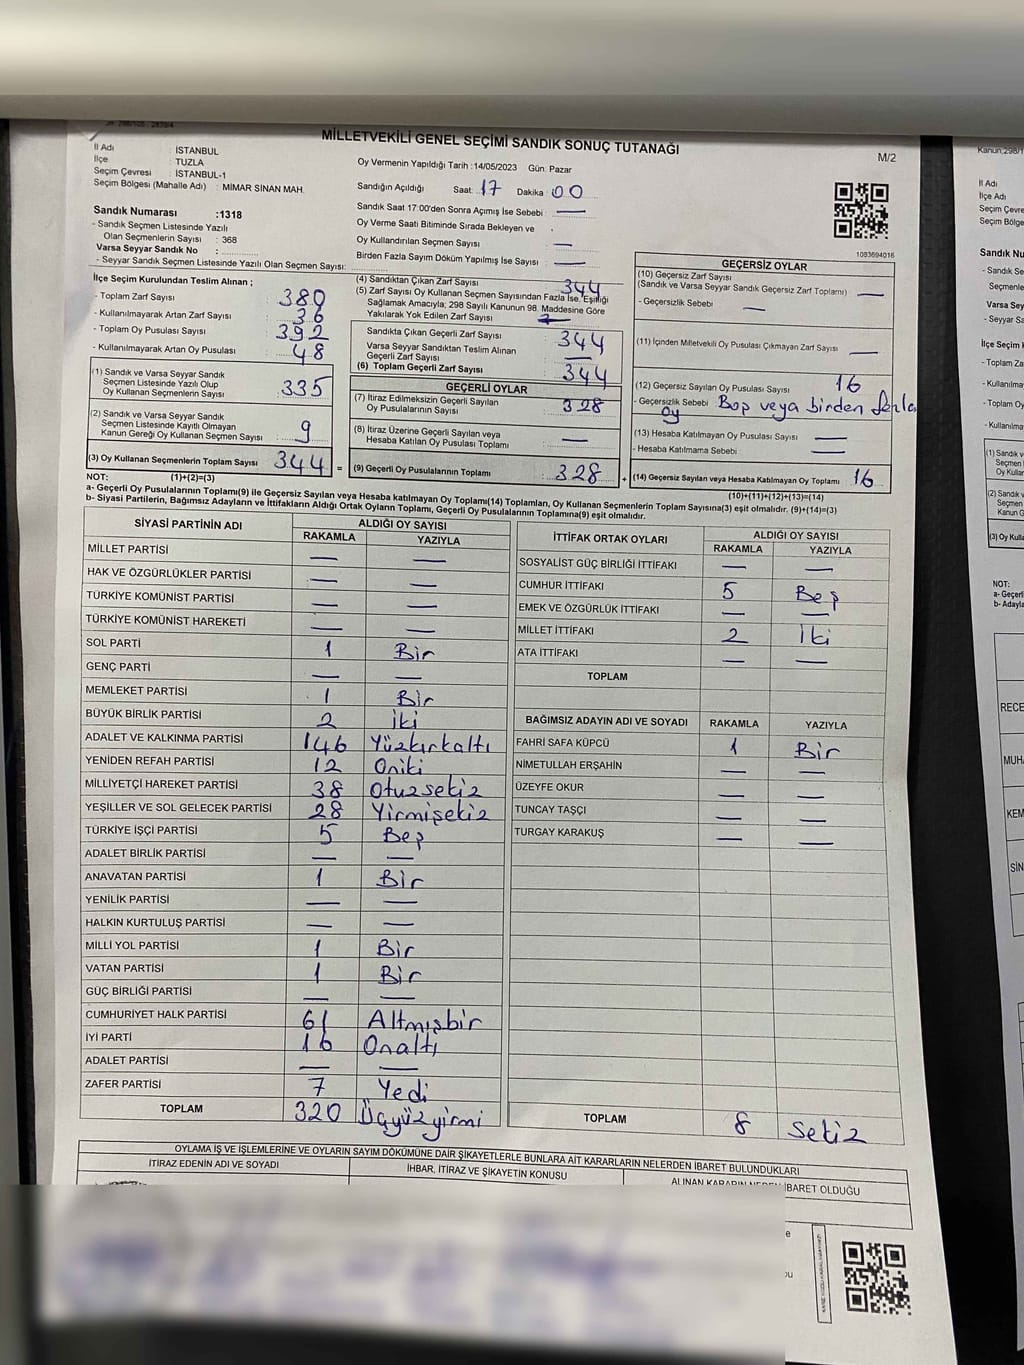 MİLLETVEKİLİ GENEL SEÇİMİ SANDIK SONUÇ TUTANAĞI
M/2
İl Adı : İSTANBUL
İlçe : TUZLA
Seçim Çevresi : İSTANBUL-1
Seçim Bölgesi (Mahalle Adı) : MİMAR SİNAN MAH.
Sandık Numarası :1318
- Sandık Seçmen Listesinde Yazılı
Olan Seçmenlerin Sayısı : 368
Varsa Seyyar Sandık No :
- Seyyar Sandık Seçmen Listesinde Yazılı Olan Seçmen Sayısı:
Oy Vermenin Yapıldığı Tarih :14/05/2023 Gün: Pazar
Sandığın Açıldığı Saat: 17 Dakika : 00
Sandık Saat 17:00'den Sonra Açımış İse Sebebi : —
Oy Verme Saati Bitiminde Sırada Bekleyen ve
Oy Kullandırılan Seçmen Sayısı : —
Birden Fazla Sayım Döküm Yapılmış İse Sayısı : —
1083694016
İlçe Seçim Kurulundan Teslim Alınan ;
- Toplam Zarf Sayısı : 380
- Kullanılmayarak Artan Zarf Sayısı : 36
- Toplam Oy Pusulası Sayısı : 392
- Kullanılmayarak Artan Oy Pusulası : 48
(1) Sandık ve Varsa Seyyar Sandık
Seçmen Listesinde Yazılı Olup
Oy Kullanan Seçmenlerin Sayısı : 335
(2) Sandık ve Varsa Seyyar Sandık
Seçmen Listesinde Kayıtlı Olmayan
Kanun Gereği Oy Kullanan Seçmen Sayısı : 9
(3) Oy Kullanan Seçmenlerin Toplam Sayısı : 344
(1)+(2)=(3)
(4) Sandıktan Çıkan Zarf Sayısı : 344
(5) Zarf Sayısı Oy Kullanan Seçmen Sayısından Fazla İse, Eşitliği
Sağlamak Amacıyla; 298 Sayılı Kanunun 98. Maddesine Göre
Yakılarak Yok Edilen Zarf Sayısı : —
Sandıkta Çıkan Geçerli Zarf Sayısı : 344
Varsa Seyyar Sandıktan Teslim Alınan
Geçerli Zarf Sayısı : —
(6) Toplam Geçerli Zarf Sayısı : 344
GEÇERLİ OYLAR
(7) İtiraz Edilmeksizin Geçerli Sayılan
Oy Pusulalarının Sayısı : 328
(8) İtiraz Üzerine Geçerli Sayılan veya
Hesaba Katılan Oy Pusulası Toplamı : —
= (9) Geçerli Oy Pusulalarının Toplamı : 328
GEÇERSİZ OYLAR
(10) Geçersiz Zarf Sayısı
(Sandık ve Varsa Seyyar Sandık Geçersiz Zarf Toplamı) : —
- Geçersizlik Sebebi : —
(11) İçinden Milletvekili Oy Pusulası Çıkmayan Zarf Sayısı : —
(12) Geçersiz Sayılan Oy Pusulası Sayısı : 16
- Geçersizlik Sebebi : Boş veya birden fazla
oy
(13) Hesaba Katılmayan Oy Pusulası Sayısı : —
- Hesaba Katılmama Sebebi : —
+ (14) Geçersiz Sayılan veya Hesaba Katılmayan Oy Toplamı : 16
(10)+(11)+(12)+(13)=(14)
NOT:
a- Geçerli Oy Pusulalarının Toplamı(9) ile Geçersiz Sayılan veya Hesaba katılmayan Oy Toplamı(14) Toplamları, Oy Kullanan Seçmenlerin Toplam Sayısına(3) eşit olmalıdır. (9)+(14)=(3)
b- Siyasi Partilerin, Bağımsız Adayların ve İttifakların Aldığı Ortak Oyların Toplamı, Geçerli Oy Pusulalarının Toplamına(9) eşit olmalıdır.
SİYASİ PARTİNİN ADI ALDIĞI OY SAYISI
RAKAMLA YAZIYLA
MİLLET PARTİSİ — —
HAK VE ÖZGÜRLÜKLER PARTİSİ — —
TÜRKİYE KOMÜNİST PARTİSİ — —
TÜRKİYE KOMÜNİST HAREKETİ — —
SOL PARTİ 1 Bir
GENÇ PARTİ — —
MEMLEKET PARTİSİ 1 Bir
BÜYÜK BİRLİK PARTİSİ 2 İki
ADALET VE KALKINMA PARTİSİ 146 Yüzkırkaltı
YENİDEN REFAH PARTİSİ 12 Oniki
MİLLİYETÇİ HAREKET PARTİSİ 38 Otuzsekiz
YEŞİLLER VE SOL GELECEK PARTİSİ 28 Yirmisekiz
TÜRKİYE İŞÇİ PARTİSİ 5 Beş
ADALET BİRLİK PARTİSİ — —
ANAVATAN PARTİSİ 1 Bir
YENİLİK PARTİSİ — —
HALKIN KURTULUŞ PARTİSİ — —
MİLLİ YOL PARTİSİ 1 Bir
VATAN PARTİSİ 1 Bir
GÜÇ BİRLİĞİ PARTİSİ — —
CUMHURİYET HALK PARTİSİ 61 Altmışbir
İYİ PARTİ 16 Onaltı
ADALET PARTİSİ — —
ZAFER PARTİSİ 7 Yedi
TOPLAM 320 Üçyüzyirmi
İTTİFAK ORTAK OYLARI ALDIĞI OY SAYISI
RAKAMLA YAZIYLA
SOSYALİST GÜÇ BİRLİĞİ İTTİFAKI — —
CUMHUR İTTİFAKI 5 Beş
EMEK VE ÖZGÜRLÜK İTTİFAKI — —
MİLLET İTTİFAKI 2 İki
ATA İTTİFAKI — —
TOPLAM
BAĞIMSIZ ADAYIN ADI VE SOYADI RAKAMLA YAZIYLA
FAHRİ SAFA KÜPCÜ 1 Bir
NİMETULLAH ERŞAHİN — —
ÜZEYFE OKUR — —
TUNCAY TAŞÇI — —
TURGAY KARAKUŞ — —
TOPLAM 8 Sekiz
OYLAMA İŞ VE İŞLEMLERİNE VE OYLARIN SAYIM DÖKÜMÜNE DAİR ŞİKAYETLERLE BUNLARA AİT KARARLARIN NELERDEN İBARET BULUNDUKLARI
İTİRAZ EDENİN ADI VE SOYADI
İHBAR, İTİRAZ VE ŞİKAYETİN KONUSU
ALINAN KARARIN NEDEN İBARET OLDUĞU
Kanun,298/1
İl Adı
İlçe Adı
Seçim Çevre
Seçim Bölge
Sandık Nu
- Sandık Se
Seçmenle
Varsa Sey
- Seyyar Sa
İlçe Seçim K
- Toplam Za
- Kullanılma
- Toplam Oy
- Kullanılma
(1) Sandık v
Seçmen
Oy Kulla
(2) Sandık v
Seçmen
Kanun G
(3) Oy Kulla
NOT:
a- Geçerl
b- Adayla
RECE
MUH
KEM
SİN